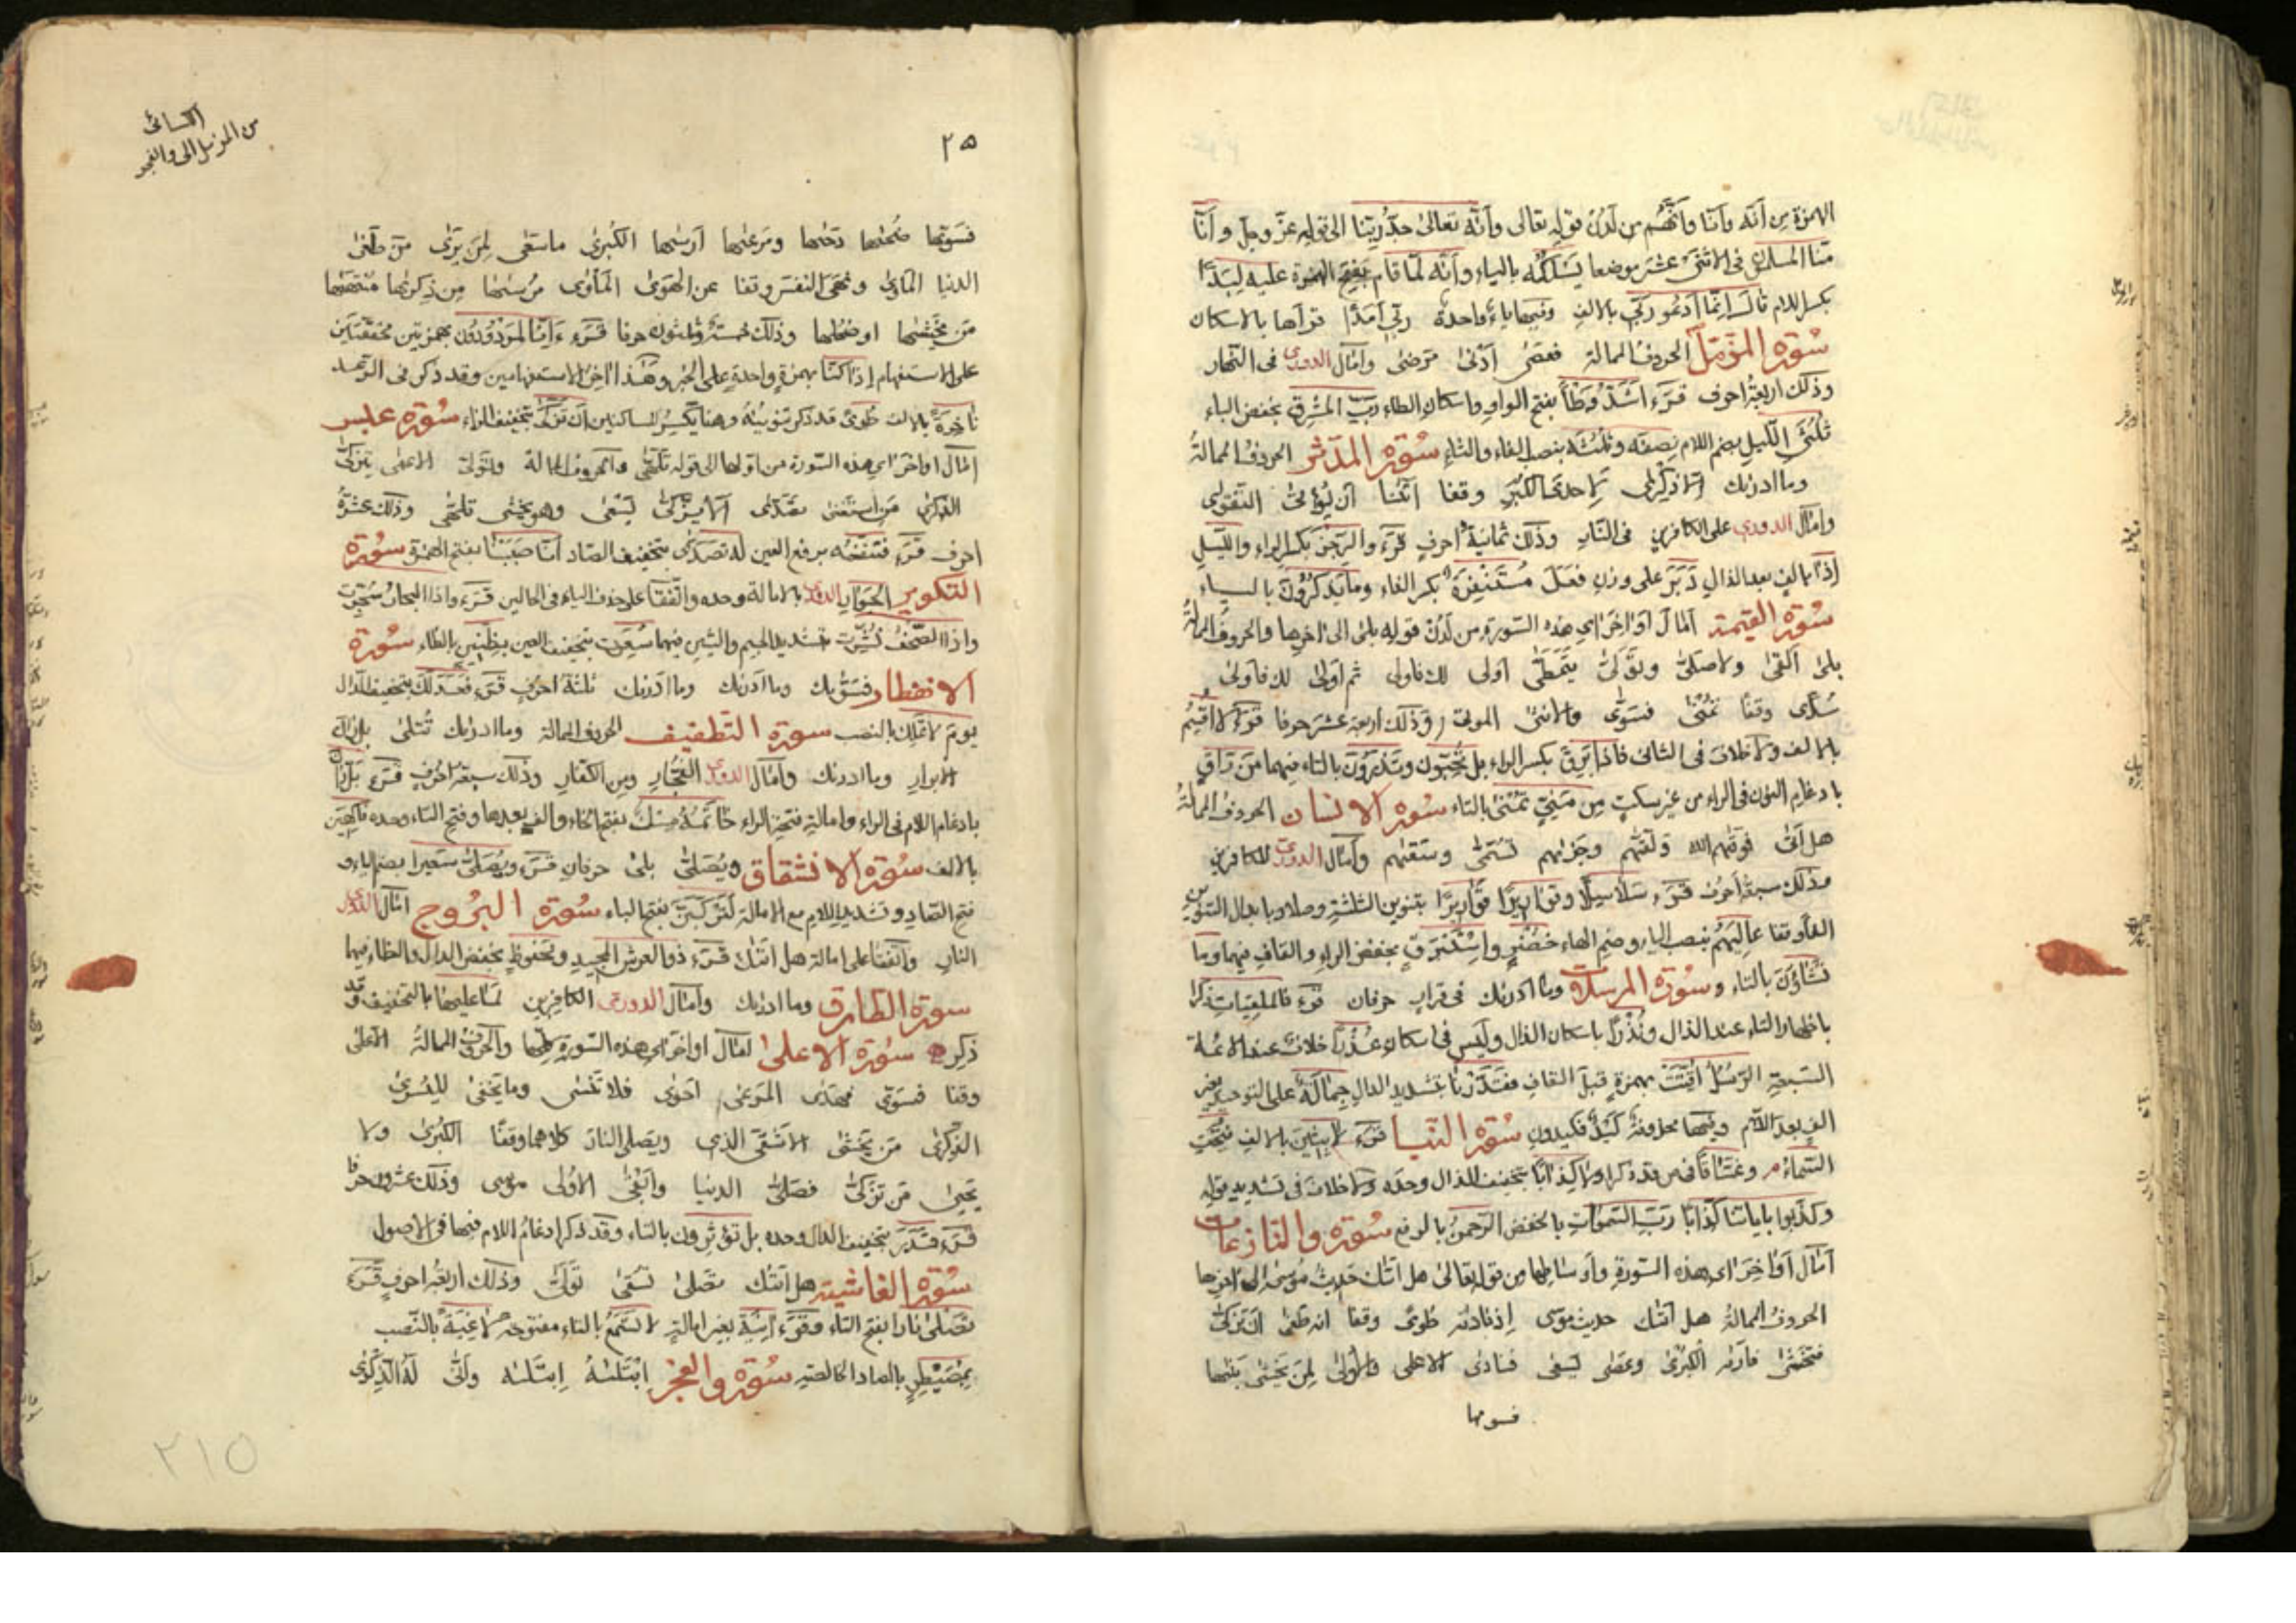 الهمزة من أنّه وأنّا وأنّهم من لدن قوله تعالى وأنّه تعالى جدّ ربّنا الى قوله عزّ وجلّ وأنّا
منّا المسلمون فى الاثنى عشر موضعا يسلكه بالياء وأنّه لمّا قام بفتح الهمزة عليه لبدًا
بكسر اللام قال انّما أدعو ربّى بالالف وفيها ياء واحدة ربّى أمدًا قرأها بالاسكان
سورة المزّمّل الحروف الممالة فعصى أدنى مرضى وأمال الدورى فى النّهار
وذلك اربعة احرف قرء اشدّ وطأ بفتح الواو واسكان الطاء ربّ المشرق بخفض الباء
ثلثى اللّيل بضم اللام نصفه وثلثه بنصب الفاء والثاء سورة المدّثر الحروف الممالة
وما ادريك الا ذكرى لاحدى الكبر وقفا أتٰنا أن يؤتى التّقوى
وأمال الدورى على الكافرين فى النّار وذلك ثمانية أحرف قرء والرّجز بكسر الراء واللّيل
إذا بالف بعد الذال دبر على وزن فعل مستنفرة بكسر الفاء وما يذكرون بالياء
سورة القيٰمة أمال أواخر اى هذه السّورة من لدن قوله بلى الى اٰخرها والحروف الممالة
بلى ألقى ولا صلّى وتولّى يتمطّى أولى لك فاولى ثم أولى لك فأولى
سدًى وقفًا تمنى فسوّى والانثى الموتى وذلك اربعة عشر حرفا قرء لا أقسم
بالالف ولا خلاف فى الثانى فاذا برق بكسر الراء بل تحبّون وتذرون بالتاء فيهما من راق
بادغام النون فى الراء من غير سكت من منىّ تمنى بالتاء سورة الانسان الحروف الممالة
هل أتى فوقٰهم الله ولقّٰهم وجزٰيهم تسمّى وسقٰهم وأمال الدورى للكافرين
وذلك سبعة أحرف قرء سلاسلًا وقواريرًا قواريرًا بتنوين الثلثة وصلا وبابدال التنوين
الفا وقفا عاليهم بنصب الياء وضم الهاء خضرٍ وإستبرقٍ بخفض الراء والقاف فيهما وما
تشاؤن بالتاء وسورة المرسلات وما ادريك فى قرار حرفان قرء فالملقيات ذكرا
باظهار التاء عند الذال ونذرًا باسكان الذال وليس فى اسكان عذرًا خلاف عند الائمة
السّبعة الرّسل أقّتت بهمزة قبل القاف فقدّرنا بتشديد الدال جمالة على التوحيد بغير
الف بعد اللام وفيها محذوفة كيد فكيدون سورة النّبا قرء لابثين بالالف فتحت
السّماء وغسّاقا قد ذكرا ولا كذابا بتخفيف الذال وحده ولا خلاف فى تشديد قوله
وكذّبوا بآياتنا كذّابا ربّ السّمٰوات بالخفض الرّحمن بالرفع سورة والنازعات
أمال أواخر اى هذه السّورة وأوساطها من قوله تعالى هل أتٰك حديث موسى الى اٰخرها
الحروف الممالة هل أتٰك حديث موسى إذ نادٰه طوى وقفا انه طغى أن تزكّى
فتخشى فأرٰه الكبرى وعصى يسعى فنادى الاعلى والأولى لمن يخشى بنٰيها
فسوٰيها
الكسائى
من المزمل الى والفجر
٢٥
فسوّٰيها ضحٰيها دحٰيها ومرعٰيها أرسٰيها الكبرى ما سعى لمن يرى من طغى
الدنيا المأوى ونهى النفس وقفا عن الهوى المأوى مرسٰيها من ذكرٰيها منتهٰيها
من يخشٰيها او ضحٰيها وذلك خمسة وثلثون حرفا قرء ءَإنّا لمردودون بهمزتين محقّقتين
على الاستفهام إذا كنّا بهمزة واحدة على الخبر وهذا اٰخر الاستفهامين وقد ذكر فى الرّعد
ناخرة بالالف طوى قد ذكر تنوينه وهنا يكسر للساكنين أن تزكّى بتخفيف الزاء سورة عبس
امال اواخر اى هذه السّورة من اوّلها الى قوله تلهّى والحروف الممالة وتولّى الاعمى يزكّى
الذكرى من استغنى تصدّى ألا يزكّى يسعى وهو يخشى تلهّى وذلك عشرة
احرف قرء فتنفعه برفع العين له تصدّى بتخفيف الصّاد أنّا صببنا بفتح الهمزة سورة
التكوير الجوار الدورى بالامالة وحده واتّفقا على حذف الياء فى الحالين قرء واذا البحار سجّرت
واذا الصّحف نشّرت بتشديد الجيم والشين فيهما سعرت بتخفيف العين بظنين بالظاء سورة
الانفطار فسوّٰيك وما أدرٰيك وما أدرٰيك ثلثة احرف قرء فعدلك بتخفيف الدّال
يوم لا تملك بالنصب سورة التطفيف الحروف الممالة وما ادريك تتلى بل ران
الابرار وما ادريك وأمال الدورى الفجّار ومن الكفّار وذلك سبعة احرف قرء بل ران
بادغام اللام فى الراء وامالة فتحة الراء خاتمه مسك بفتح الخاء والف بعدها وفتح التاء وحده فاكهين
بالالف سورة الانشقاق ويصلّى بلى حرفان قرء ويصلّى سعيرا بضم الياء و
فتح الصّاد وتشديد اللام مع الامالة لتركبنّ بفتح الباء سورة البروج امال الدورى
النار واتّفقا على امالة هل أتٰك قرء ذو العرش المجيد ومحفوظ بخفض الدال والظاء فيهما
سورة الطارق وما ادريك وأمال الدورى الكافرين لما عليها بالتخفيف وقد
ذكر سورة الاعلى امال اواخر اى هذه السّورة كلّها والحروف الممالة الأعلى
وقفا فسوّى فهدى المرعى أحوى فلا تنسى وما يخفى لليسرى
الذكرى من يخشى الأشقى الذى ويصلى النار كلاهما وقفًا الكبرى ولا
يحيى من تزكّى فصلّى الدنيا وأبقى الأولى موسى وذلك عشرون حرفا
قرء قدر بتخفيف الدال وحده بل تؤثرون بالتاء وقد ذكر ادغام اللام فيها فى الاصول
سورة الغاشية هل أتٰك تصلى تسقى تولّى وذلك أربعة احرف قرء
تصلى نارا بفتح التاء وقرء اٰنية بغير امالة لا تسمع بالتاء مفتوحة لاغية بالنّصب
بمصيطر بالصاد الخالصة سورة والفجر ابتلٰه ابتلٰه وأنّى له الذّكرى
٢١٥